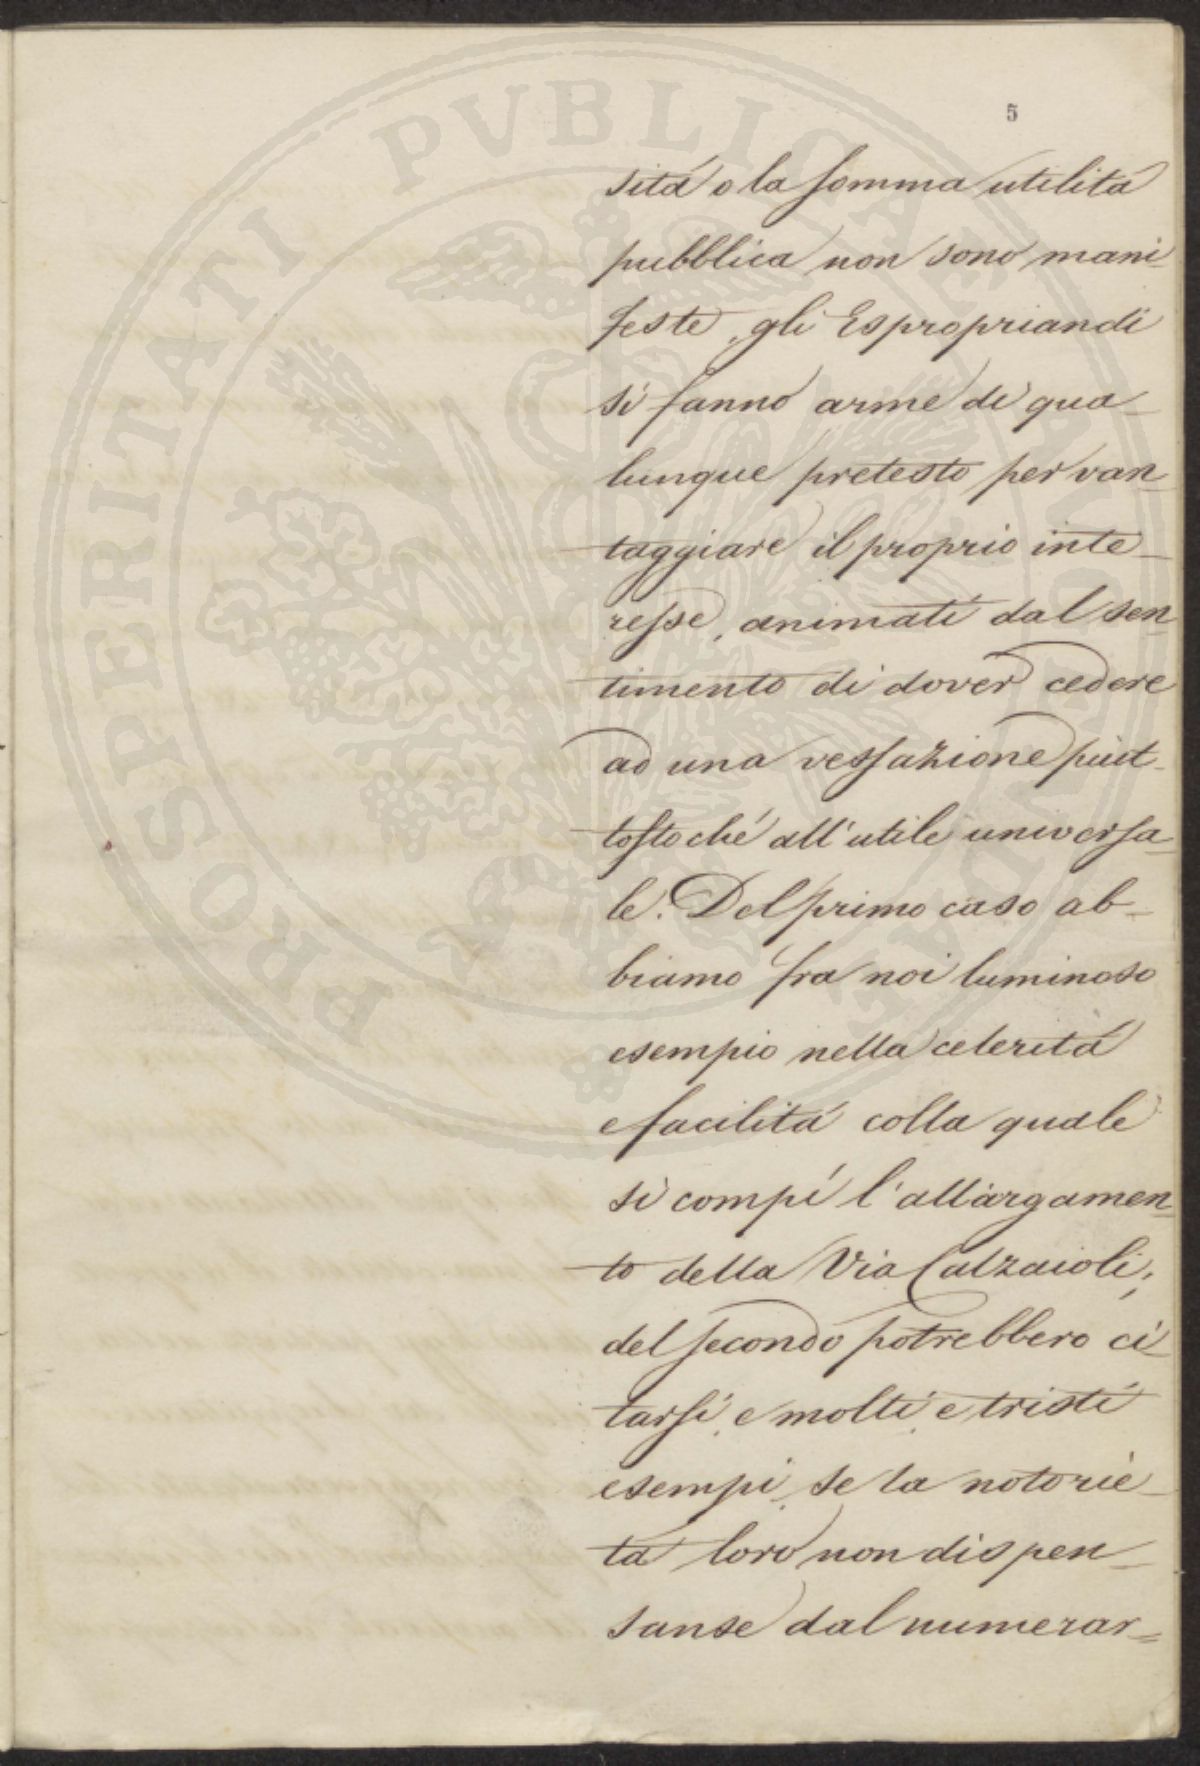 PROSPERITATI PVBLICAE AVGENDAE
5
sitá o la somma utilitá
pubblica non sono mani-
feste, gli Espropriandi
si fanno arme di qua-
lunque pretesto per van-
taggiare il proprio inte-
resse, animati dal sen-
timento di dover cedere
ad una vessazione piut-
tostoché all'utile universa-
le. Del primo caso ab-
biamo fra noi luminoso
esempio nella celeritá
e facilitá colla quale
si compí l'allargamen-
to della Via Calzaioli;
del secondo potrebbero ci-
tarsi, e molti, e tristi
esempi, se la notorie-
tá loro non dispen-
sanse dal numerar=